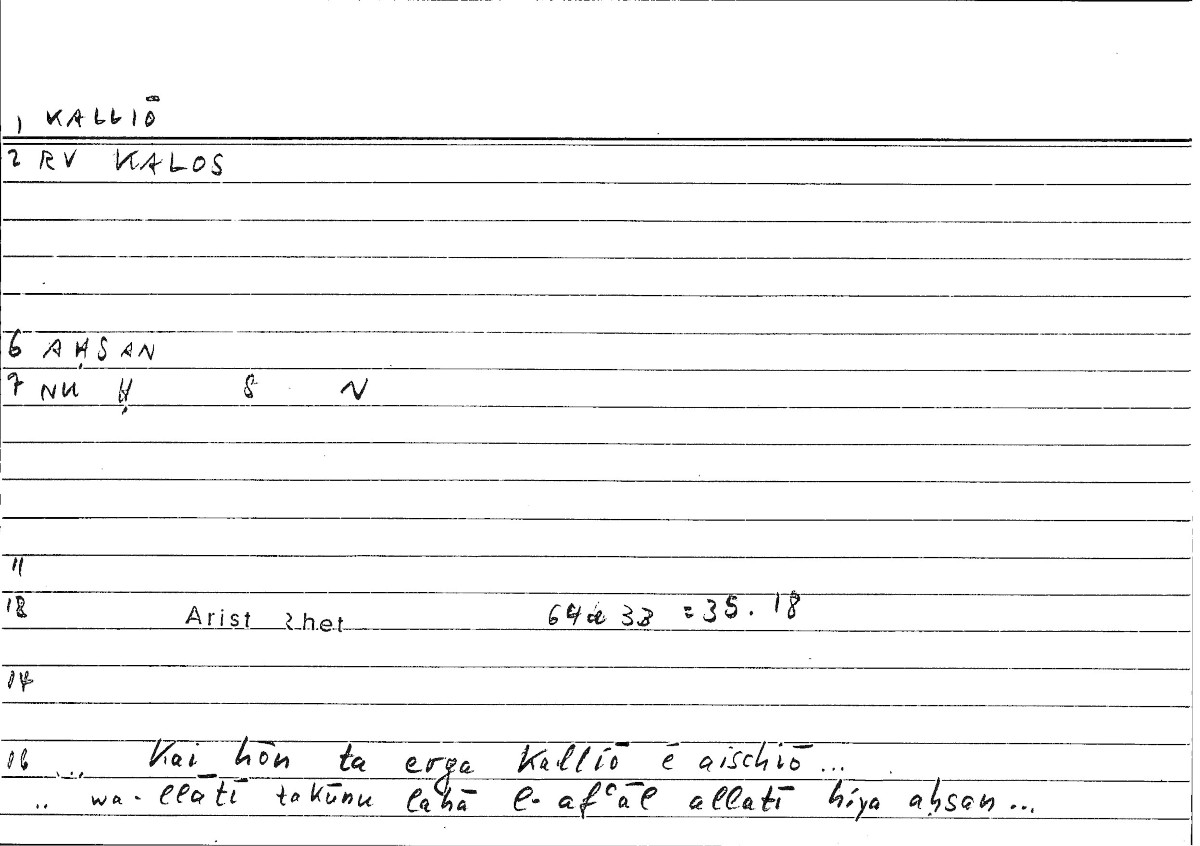 1 KALLIŌ
2 RV KALOS
6 AḤSAN
7 NU Ḥ S N
11
12 Arist Rhet 64a 33 = 35.18
14
16 .... Kai hōn ta erga Kalliō ē aischiō...
.. wa-llātī takūnu lahā l-afʿāl allatī hiya aḥsan...